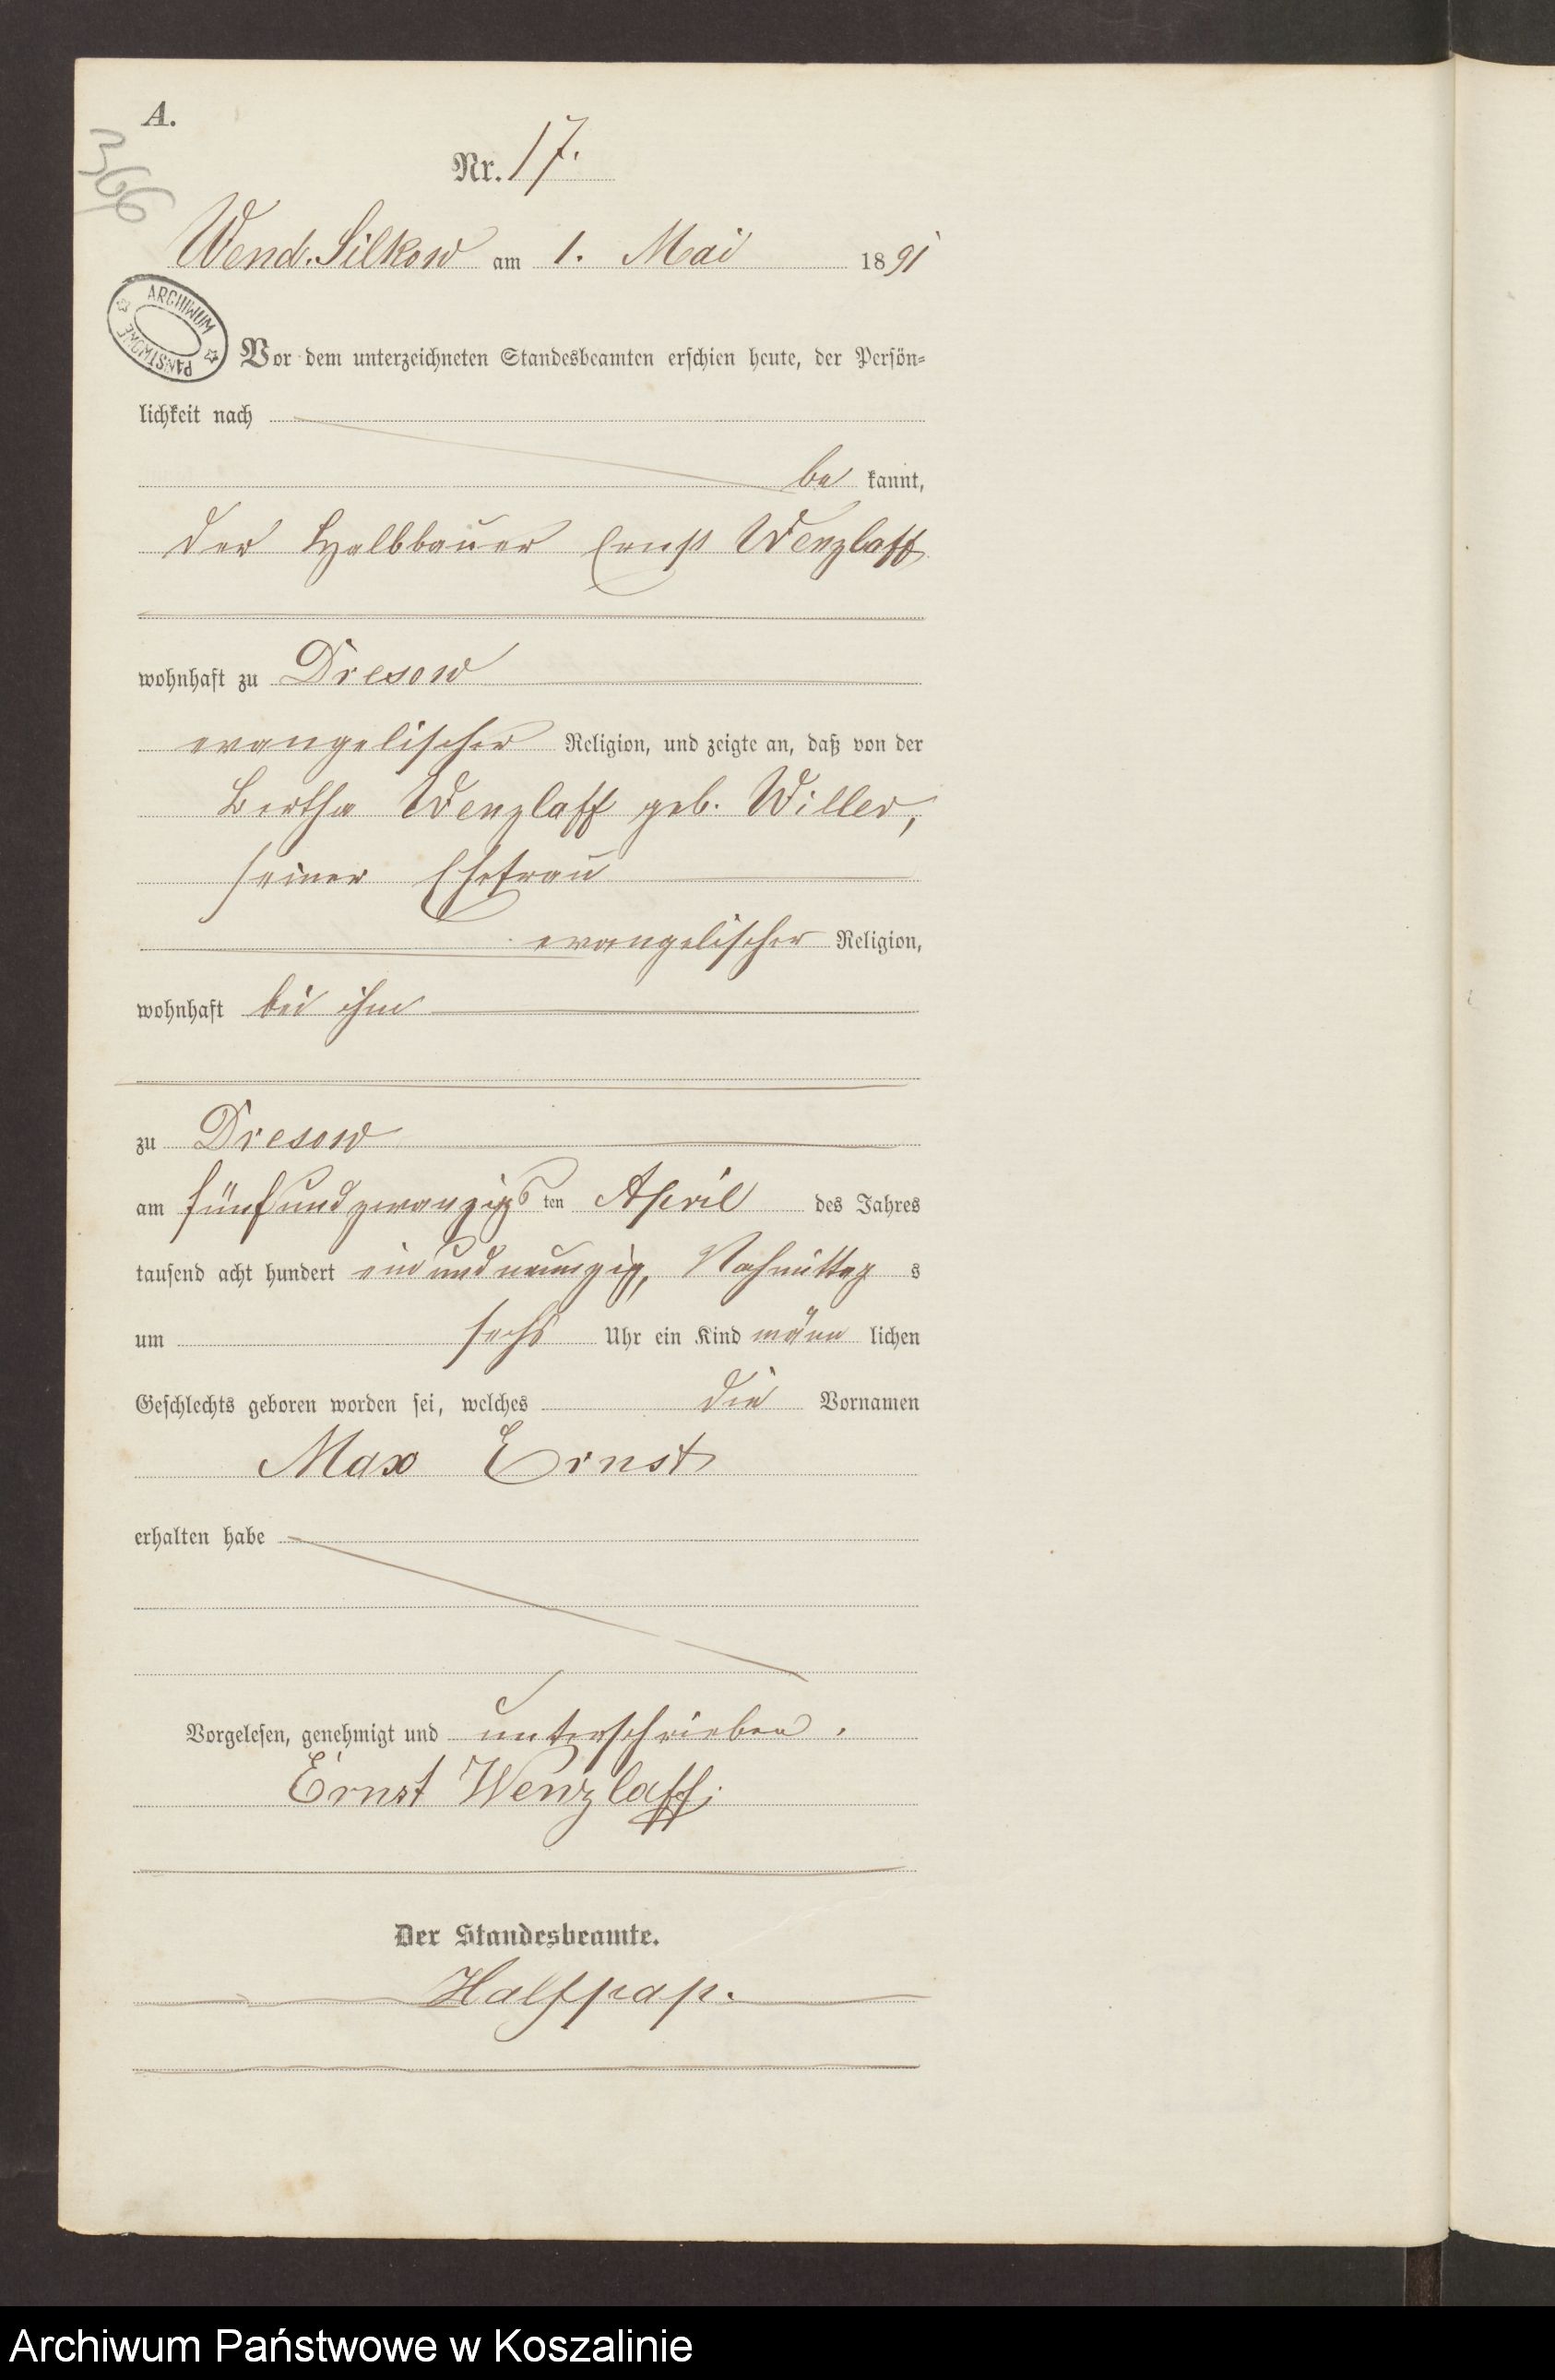 A.
366
Nr. 17.
Wend. Silkow am 1. Mai 1891
ARCHIWUM PAŃSTWOWE
Vor dem unterzeichneten Standesbeamten erschien heute, der Persön-
lichkeit nach
be kannt,
der Halbbauer Ernst Wenzlaff
wohnhaft zu Dresow
evangelischer Religion, und zeigte an, daß von der
Bertha Wenzlaff geb. Willer,
seiner Ehefrau
evangelischer Religion,
wohnhaft bei ihm
zu Dresow
am fünfundzwanzigs ten April des Jahres
tausend acht hundert einundneunzig, Nachmittag s
um sechs Uhr ein Kind männ lichen
Geschlechts geboren worden sei, welches die Vornamen
Max Ernst
erhalten habe
Vorgelesen, genehmigt und unterschrieben.
Ernst Wenzlaff;
Der Standesbeamte.
Halfpap.
Archiwum Państwowe w Koszalinie